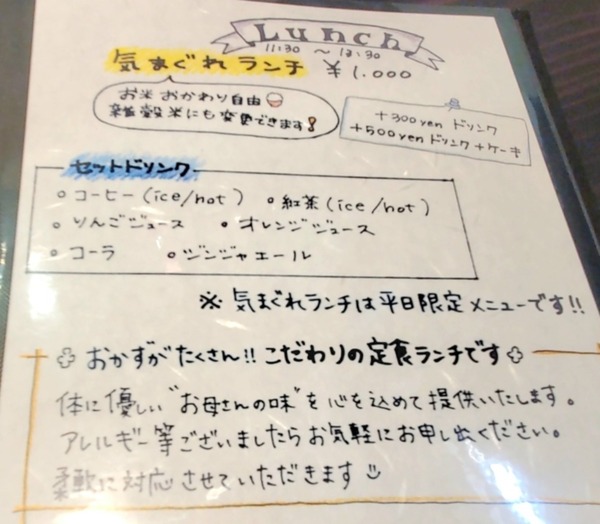 Lunch
11:30 ～ 13:30
気まぐれランチ ￥1.000
お米おかわり自由
雑穀米にも変更できます!
+300yen ドリンク
+500yen ドリンク+ケーキ
セットドリンク
○コーヒー(ice/hot) ○紅茶(ice/hot)
○りんごジュース ○オレンジジュース
○コーラ ○ジンジャエール
※ 気まぐれランチは平日限定メニューです!!
おかずがたくさん!! こだわりの定食ランチです
体に優しい"お母さんの味"を心を込めて提供いたします。
アレルギー等ございましたらお気軽にお申し出ください。
柔軟に対応させていただきます